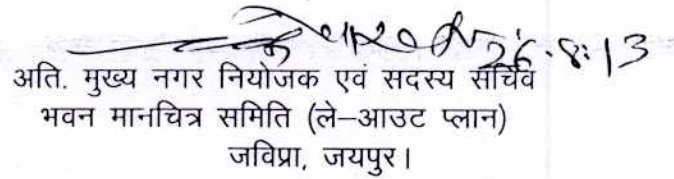 26.8.13
अति. मुख्य नगर नियोजक एवं सदस्य सचिव
भवन मानचित्र समिति (ले–आउट प्लान)
जविप्रा, जयपुर।